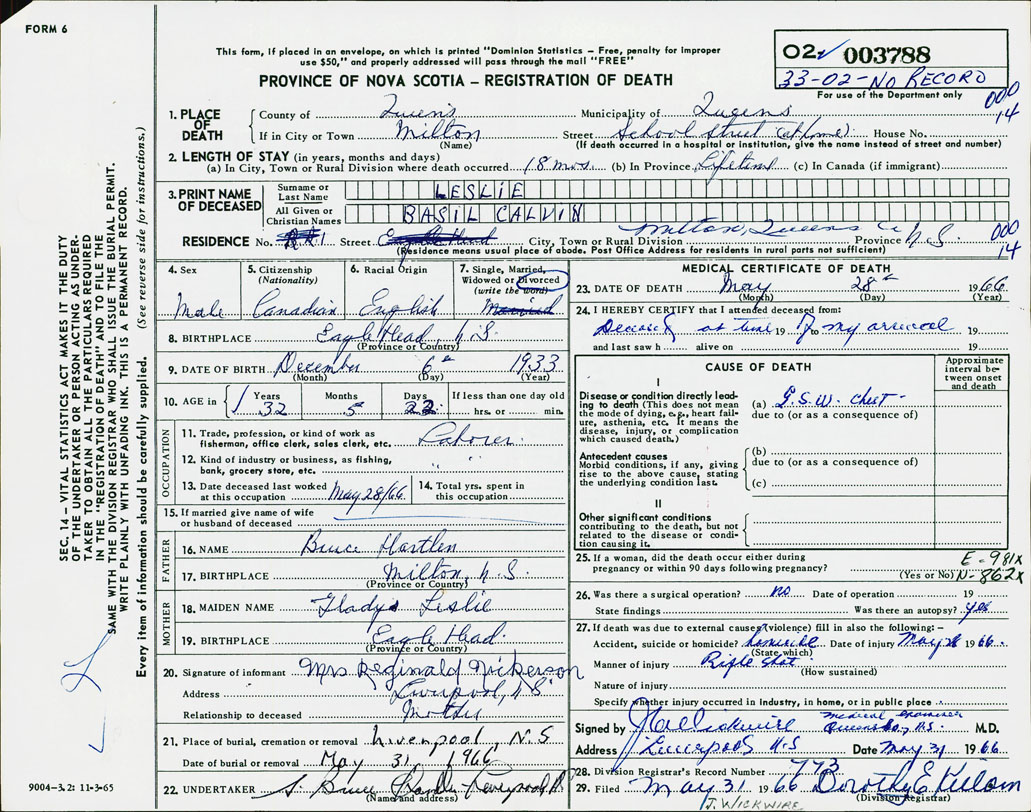 FORM 6
This form, if placed in an envelope, on which is printed "Dominion Statistics – Free, penalty for improper
use $50," and properly addressed will pass through the mail "FREE"
PROVINCE OF NOVA SCOTIA – REGISTRATION OF DEATH
02 003788
33-02-NO RECORD
For use of the Department only
000
14
1. PLACE OF DEATH
County of Queens Municipality of Queens
If in City or Town Milton Street School Street (at home) House No.
(Name) (If death occurred in a hospital or institution, give the name instead of street and number)
2. LENGTH OF STAY (in years, months and days)
(a) In City, Town or Rural Division where death occurred 18 mos. (b) In Province Lifetime (c) In Canada (if immigrant)
3. PRINT NAME OF DECEASED
Surname or Last Name LESLIE
All Given or Christian Names BASIL CALVIN
RESIDENCE No. RR1 Street Eagle Head City, Town or Rural Division Milton, Queens Co Province N.S. 000
14
(Residence means usual place of abode. Post Office Address for residents in rural parts not sufficient)
4. Sex
Male
5. Citizenship
(Nationality)
Canadian
6. Racial Origin
English
7. Single, Married,
Widowed or Divorced
(write the word)
Married
8. BIRTHPLACE Eagle Head, N.S
(Province or Country)
9. DATE OF BIRTH December 6th 1933
(Month) (Day) (Year)
10. AGE in Years 32 Months 5 Days 22 If less than one day old
hrs. or min.
OCCUPATION
11. Trade, profession, or kind of work as
fisherman, office clerk, sales clerk, etc. Laborer.
12. Kind of industry or business, as fishing,
bank, grocery store, etc. " "
13. Date deceased last worked
at this occupation May 28/66
14. Total yrs. spent in
this occupation
15. If married give name of wife
or husband of deceased
FATHER
16. NAME Bruce Hartlen
17. BIRTHPLACE Milton, N.S.
(Province or Country)
MOTHER
18. MAIDEN NAME Gladys Leslie
19. BIRTHPLACE Eagle Head.
(Province or Country)
20. Signature of informant Mrs Reginald Nickerson
Address Liverpool, N.S
Relationship to deceased Mother
21. Place of burial, cremation or removal Liverpool N.S
Date of burial or removal May 31, 1966
22. UNDERTAKER S. Bruce
(Name and address)
MEDICAL CERTIFICATE OF DEATH
23. DATE OF DEATH May 28th 1966
(Month) (Day) (Year)
24. I HEREBY CERTIFY that I attended deceased from:
Deceased at time 19 of to my arrival 19
and last saw h alive on 19
CAUSE OF DEATH
Approximate
interval be-
tween onset
and death
I
Disease or condition directly lead-
ing to death (This does not mean
the mode of dying, e.g., heart fail-
ure, asthenia, etc. It means the
disease, injury, or complication
which caused death.)
(a) G.S.W. Chest -
due to (or as a consequence of)
Antecedent causes
Morbid conditions, if any, giving
rise to the above cause, stating
the underlying condition last.
(b)
due to (or as a consequence of)
(c)
II
Other significant conditions
contributing to the death, but not
related to the disease or condi-
tion causing it.
25. If a woman, did the death occur either during
pregnancy or within 90 days following pregnancy?
(Yes or No)
E-981X
N-862X
26. Was there a surgical operation? no Date of operation 19
State findings Was there an autopsy? yes
27. If death was due to external causes (violence) fill in also the following:–
Accident, suicide or homicide? homicide Date of injury May 28 1966.
(State which)
Manner of injury Rifle shot
(How sustained)
Nature of injury
Specify whether injury occurred in Industry, in home, or in public place
Signed by J Wickwire medical examiner Queens Co, N.S. M.D.
Address Liverpool N.S Date May 31 1966
28. Division Registrar's Record Number 773
29. Filed May 31 1966 Dorothy E Killam
(Division Registrar)
J. WICKWIRE
SEC. 14 – VITAL STATISTICS ACT MAKES IT THE DUTY
OF THE UNDERTAKER OR PERSON ACTING AS UNDER-
TAKER TO OBTAIN ALL THE PARTICULARS REQUIRED
IN THE "REGISTRATION OF DEATH" AND TO FILE THE
SAME WITH THE DIVISION REGISTRAR WHO SHALL ISSUE THE BURIAL PERMIT.
WRITE PLAINLY WITH UNFADING INK. THIS IS A PERMANENT RECORD.
Every item of information should be carefully supplied. (See reverse side for instructions.)
9004-3.2: 11-3-65